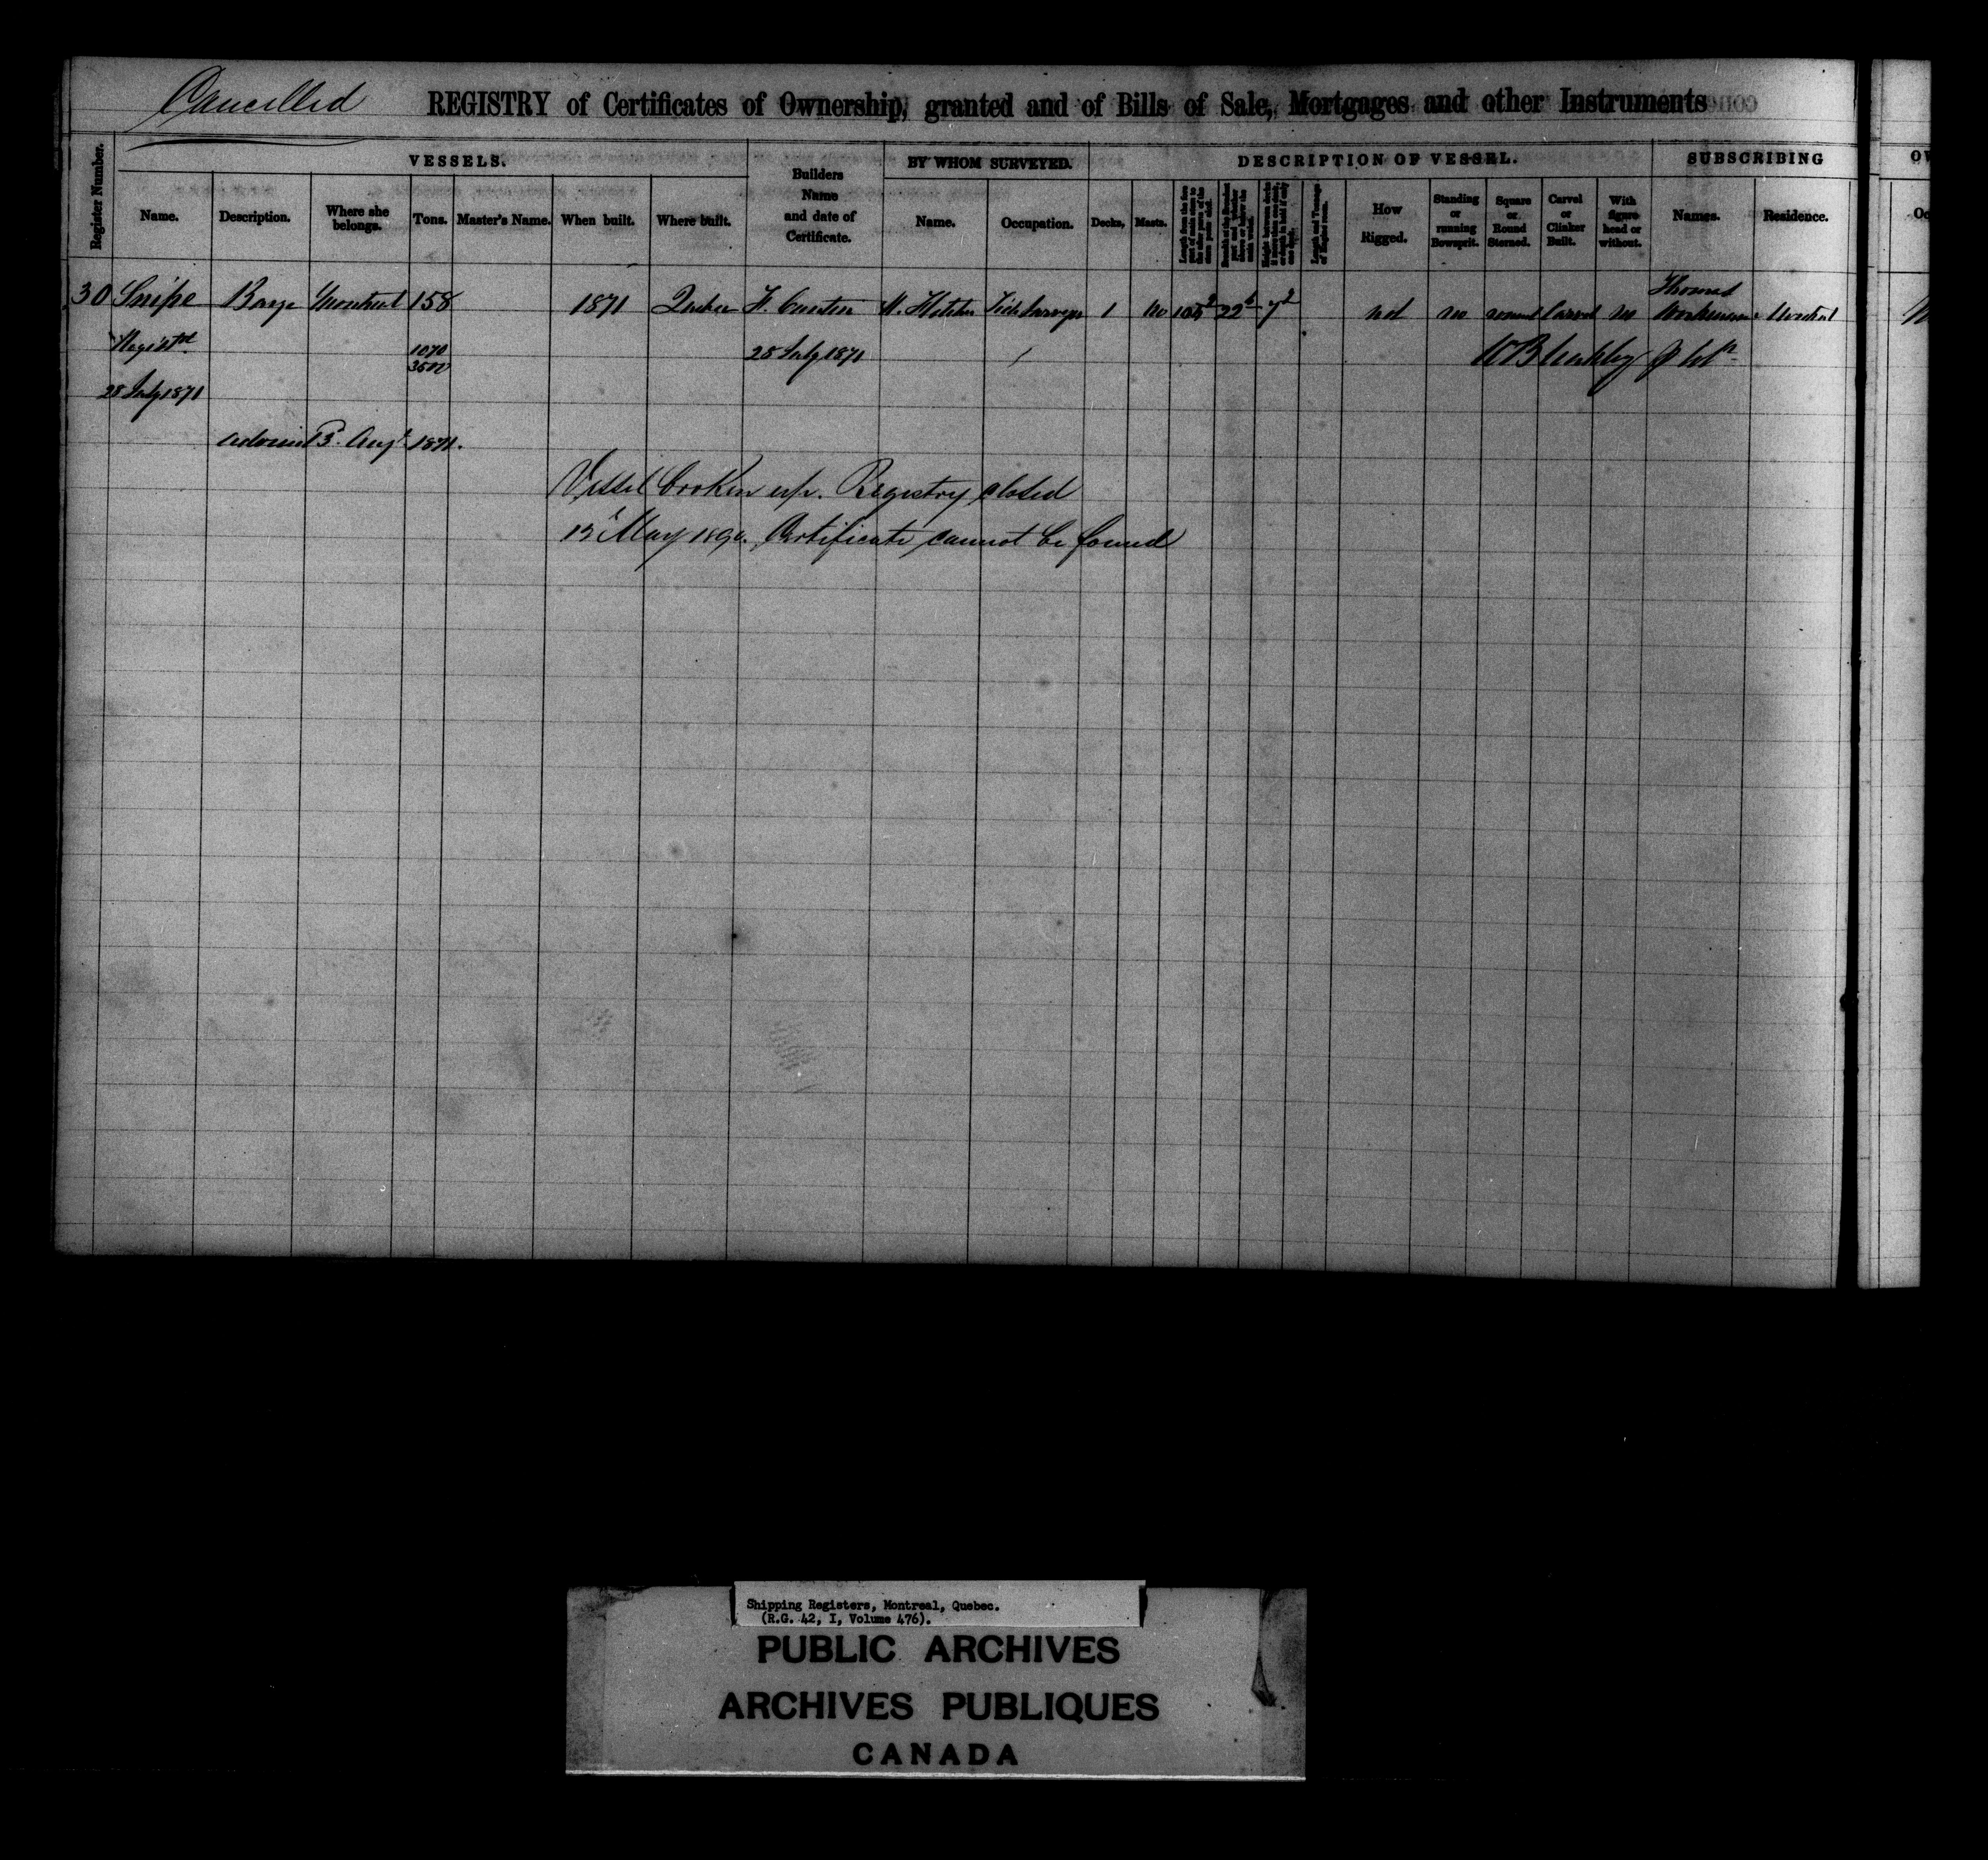 Cancelled
REGISTRY of Certificates of Ownership, granted and of Bills of Sale, Mortgages and other Instruments
Register Number.
VESSELS.
Name.
Description.
Where she belongs.
Tons.
Master's Name.
When built.
Where built.
Builders Name and date of Certificate.
BY WHOM SURVEYED.
Name.
Occupation.
DESCRIPTION OF VESSEL.
Decks,
Masts.
Length and Tonnage of Engine room.
How Rigged.
Standing or running Bowsprit.
Square or Round Sterned.
Carvel or Clinker Built.
With figure head or without.
SUBSCRIBING
Names.
Residence.
OW
Oc
30 Snipe Barge Montreal 158 1871 Quebec 1 no 105 2 22 7 2 not no round Carvel no Thomas Workman Montreal
Registd 1070 28 July 1871
3500
28 July 1871
advised 3 Augt 1871.
Vessel broken up. Registry closed
May 1890. Certificate cannot be found
Shipping Registers, Montreal, Quebec.
(R.G. 42, I, Volume 476).
PUBLIC ARCHIVES
ARCHIVES PUBLIQUES
CANADA